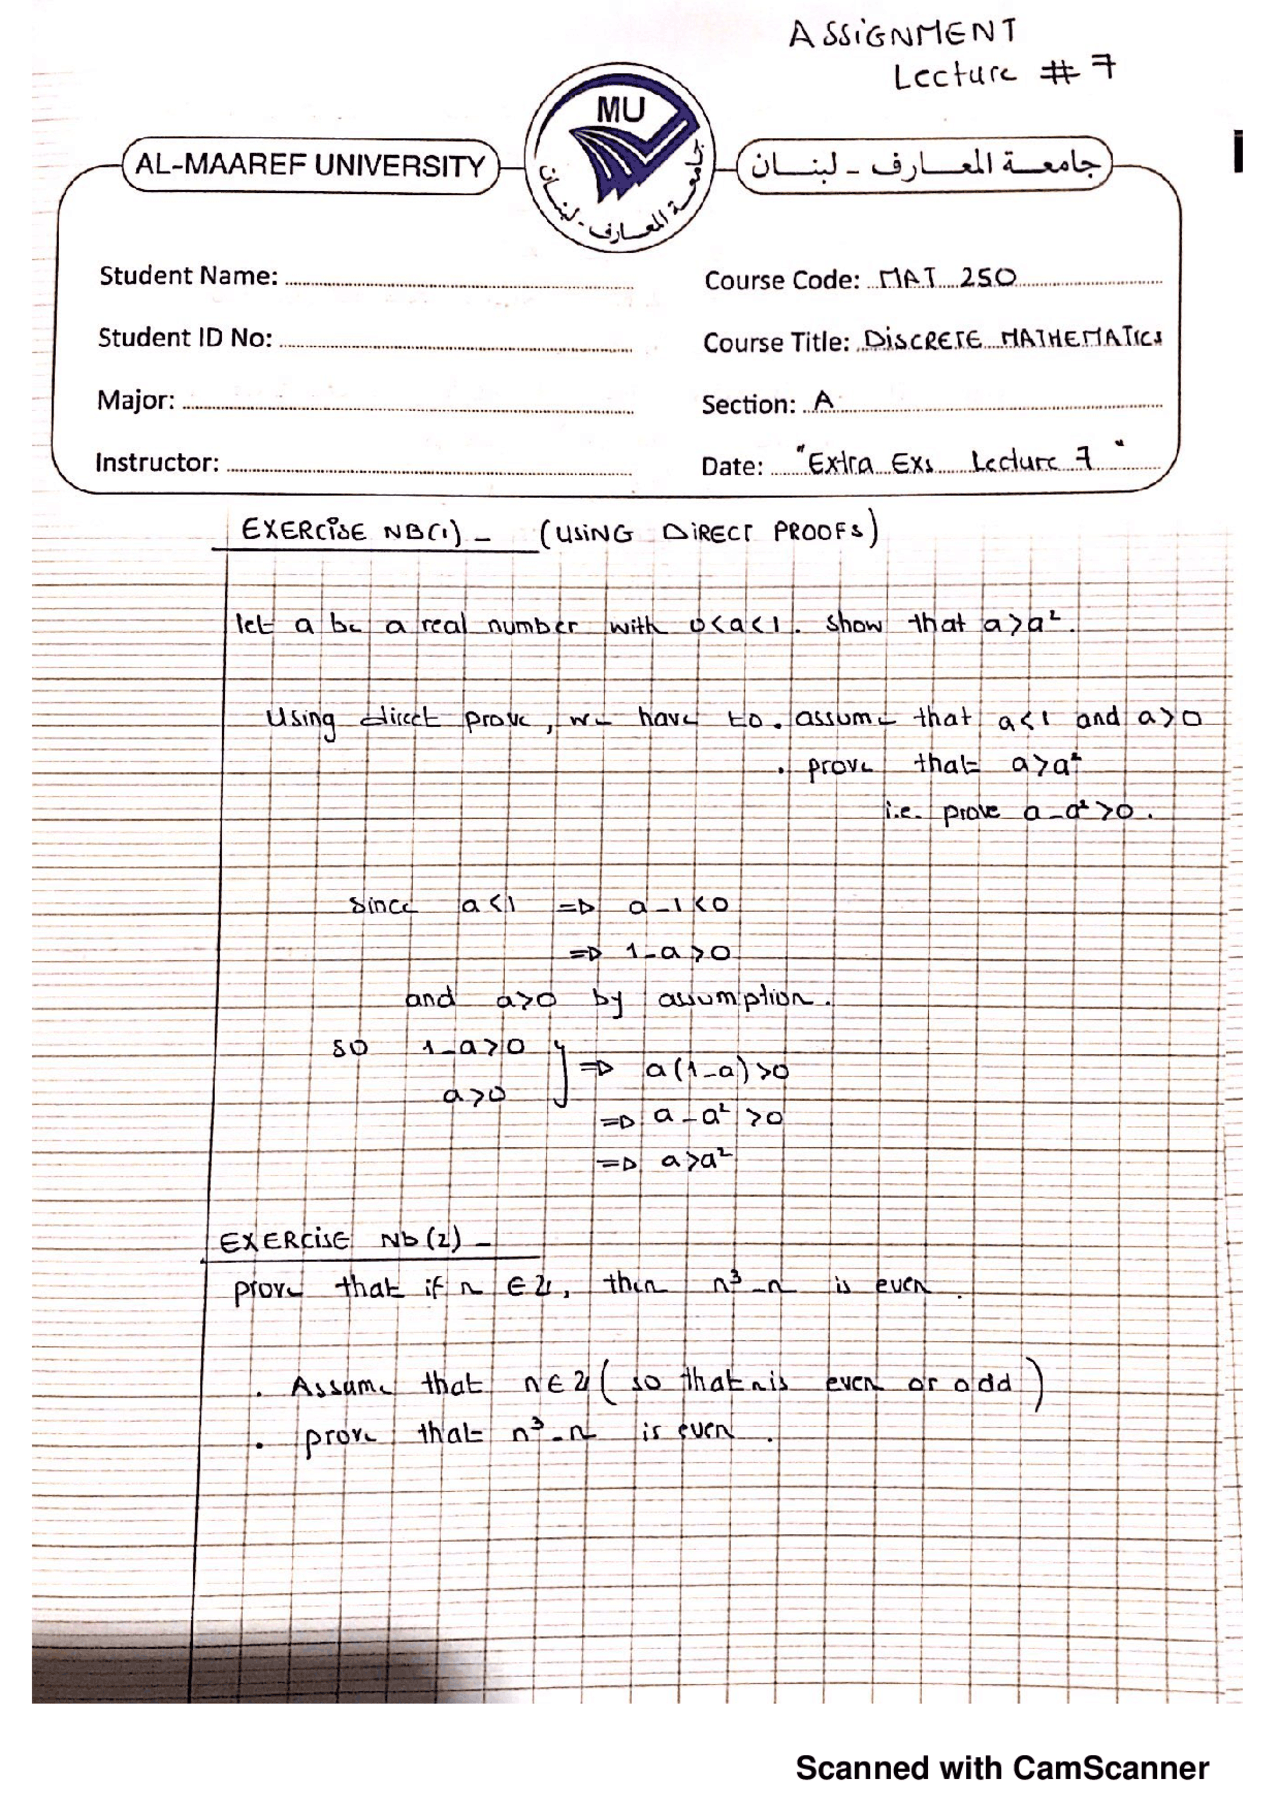 ASSIGNMENT
Lecture # 7
MU
جامعة المعارف - لبنان
AL-MAAREF UNIVERSITY
جامعة المعارف - لبنان
Student Name:
Course Code: MAT 250
Student ID No:
Course Title: DISCRETE MATHEMATICS
Major:
Section: A
Instructor:
Date: "Extra Exs Lecture 7"
EXERCISE NB(1) - (USING DIRECT PROOFS)
let a be a real number with 0<a<1. show that a>a².
Using direct prove, we have to . assume that a<1 and a>0
. prove that a>a²
i.e. prove a-a²>0.
since a<1 => a-1<0
=> 1-a>0
and a>0 by assumption.
so 1-a>0
a>0 } => a(1-a)>0
=> a-a²>0
=> a>a²
EXERCISE Nb(2) -
prove that if n ∈ ℤ, then n³-n is even.
. Assume that n∈ℤ (so that n is even or odd)
. prove that n³-n is even.
Scanned with CamScanner